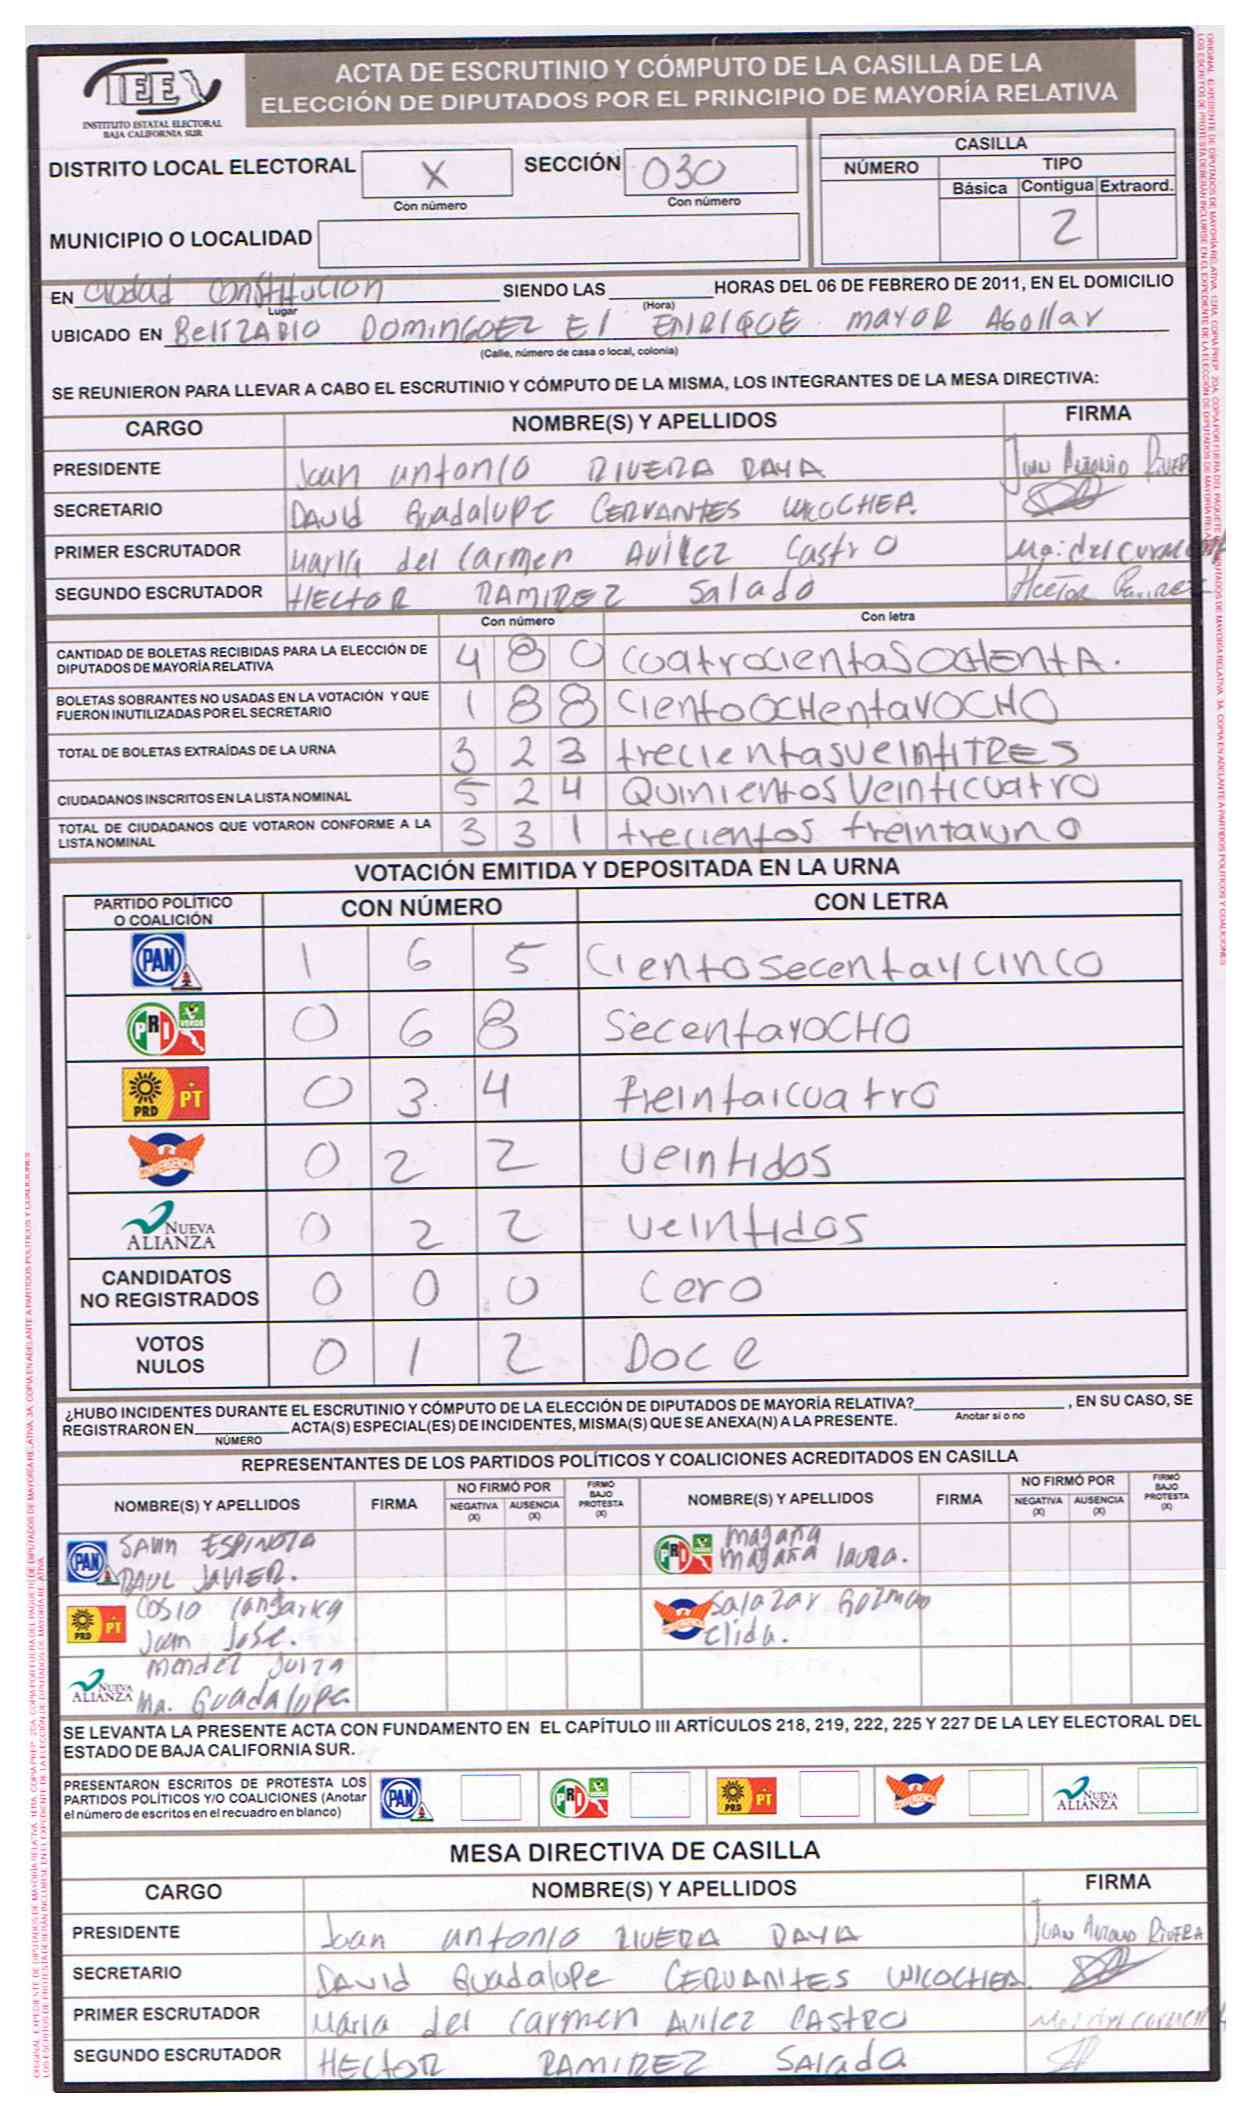 IEEV
INSTITUTO ESTATAL ELECTORAL
BAJA CALIFORNIA SUR
ACTA DE ESCRUTINIO Y CÓMPUTO DE LA CASILLA DE LA
ELECCIÓN DE DIPUTADOS POR EL PRINCIPIO DE MAYORÍA RELATIVA
DISTRITO LOCAL ELECTORAL X SECCIÓN 030
Con número Con número
MUNICIPIO O LOCALIDAD
CASILLA
NÚMERO TIPO
Básica Contigua Extraord.
2
EN Ciudad Constitucion SIENDO LAS HORAS DEL 06 DE FEBRERO DE 2011, EN EL DOMICILIO
Lugar (Hora)
UBICADO EN BELIZARIO DOMINGUEZ E1 ENRIQUE MAYOR AGOLLAR
(Calle, número de casa o local, colonia)
SE REUNIERON PARA LLEVAR A CABO EL ESCRUTINIO Y CÓMPUTO DE LA MISMA, LOS INTEGRANTES DE LA MESA DIRECTIVA:
CARGO NOMBRE(S) Y APELLIDOS FIRMA
PRESIDENTE Juan Antonio RIVERA RAYA JUAN ANTONIO RIVER
SECRETARIO DAVID Guadalupe CERVANTES WICOCHEA.
PRIMER ESCRUTADOR Maria del Carmen AVILEZ Castro
SEGUNDO ESCRUTADOR HECTOR RAMIREZ Salado Hector Ramirez
Con número Con letra
CANTIDAD DE BOLETAS RECIBIDAS PARA LA ELECCIÓN DE
DIPUTADOS DE MAYORÍA RELATIVA 4 8 0 CuatrocientasOCHENTA.
BOLETAS SOBRANTES NO USADAS EN LA VOTACIÓN Y QUE
FUERON INUTILIZADAS POR EL SECRETARIO 1 8 8 CientoOCHentayOCHO
TOTAL DE BOLETAS EXTRAÍDAS DE LA URNA 3 2 3 trecientasveintiTRES
CIUDADANOS INSCRITOS EN LA LISTA NOMINAL 5 2 4 QuinientosVeinticuatro
TOTAL DE CIUDADANOS QUE VOTARON CONFORME A LA
LISTA NOMINAL 3 3 1 trecientos treintaiuno
VOTACIÓN EMITIDA Y DEPOSITADA EN LA URNA
PARTIDO POLÍTICO
O COALICIÓN CON NÚMERO CON LETRA
PAN 1 6 5 Cientosecentaycinco
PRI VERDE 0 6 8 SecentayOCHO
PRD PT 0 3 4 treintaicuatro
CONVERGENCIA 0 2 2 veintidos
NUEVA ALIANZA 0 2 2 veintidos
CANDIDATOS
NO REGISTRADOS 0 0 0 Cero
VOTOS
NULOS 0 1 2 Doce
¿HUBO INCIDENTES DURANTE EL ESCRUTINIO Y CÓMPUTO DE LA ELECCIÓN DE DIPUTADOS DE MAYORÍA RELATIVA? , EN SU CASO, SE
Anotar si o no
REGISTRARON EN ACTA(S) ESPECIAL(ES) DE INCIDENTES, MISMA(S) QUE SE ANEXA(N) A LA PRESENTE.
NÚMERO
REPRESENTANTES DE LOS PARTIDOS POLÍTICOS Y COALICIONES ACREDITADOS EN CASILLA
NOMBRE(S) Y APELLIDOS FIRMA NO FIRMÓ POR NEGATIVA (X) AUSENCIA (X) FIRMÓ BAJO PROTESTA (X) NOMBRE(S) Y APELLIDOS FIRMA NO FIRMÓ POR NEGATIVA (X) AUSENCIA (X) FIRMÓ BAJO PROTESTA (X)
PAN ESPINOZA
RAUL JAVIER.
PRI VERDE magaña
magaña laura.
PRD PT COSIO
Juan Jose.
CONVERGENCIA Salazar Guzman
Elida.
NUEVA ALIANZA Mendez
Ma. Guadalupe
SE LEVANTA LA PRESENTE ACTA CON FUNDAMENTO EN EL CAPÍTULO III ARTÍCULOS 218, 219, 222, 225 Y 227 DE LA LEY ELECTORAL DEL
ESTADO DE BAJA CALIFORNIA SUR.
PRESENTARON ESCRITOS DE PROTESTA LOS
PARTIDOS POLÍTICOS Y/O COALICIONES (Anotar
el número de escritos en el recuadro en blanco)
PAN PRI VERDE PRD PT CONVERGENCIA NUEVA ALIANZA
MESA DIRECTIVA DE CASILLA
CARGO NOMBRE(S) Y APELLIDOS FIRMA
PRESIDENTE Juan Antonio RIVERA RAYA JUAN ANTONIO RIVERA
SECRETARIO DAVID Guadalupe CERVANTES WICOCHEA.
PRIMER ESCRUTADOR Maria del Carmen AVILEZ CASTRO
SEGUNDO ESCRUTADOR HECTOR RAMIREZ Salada